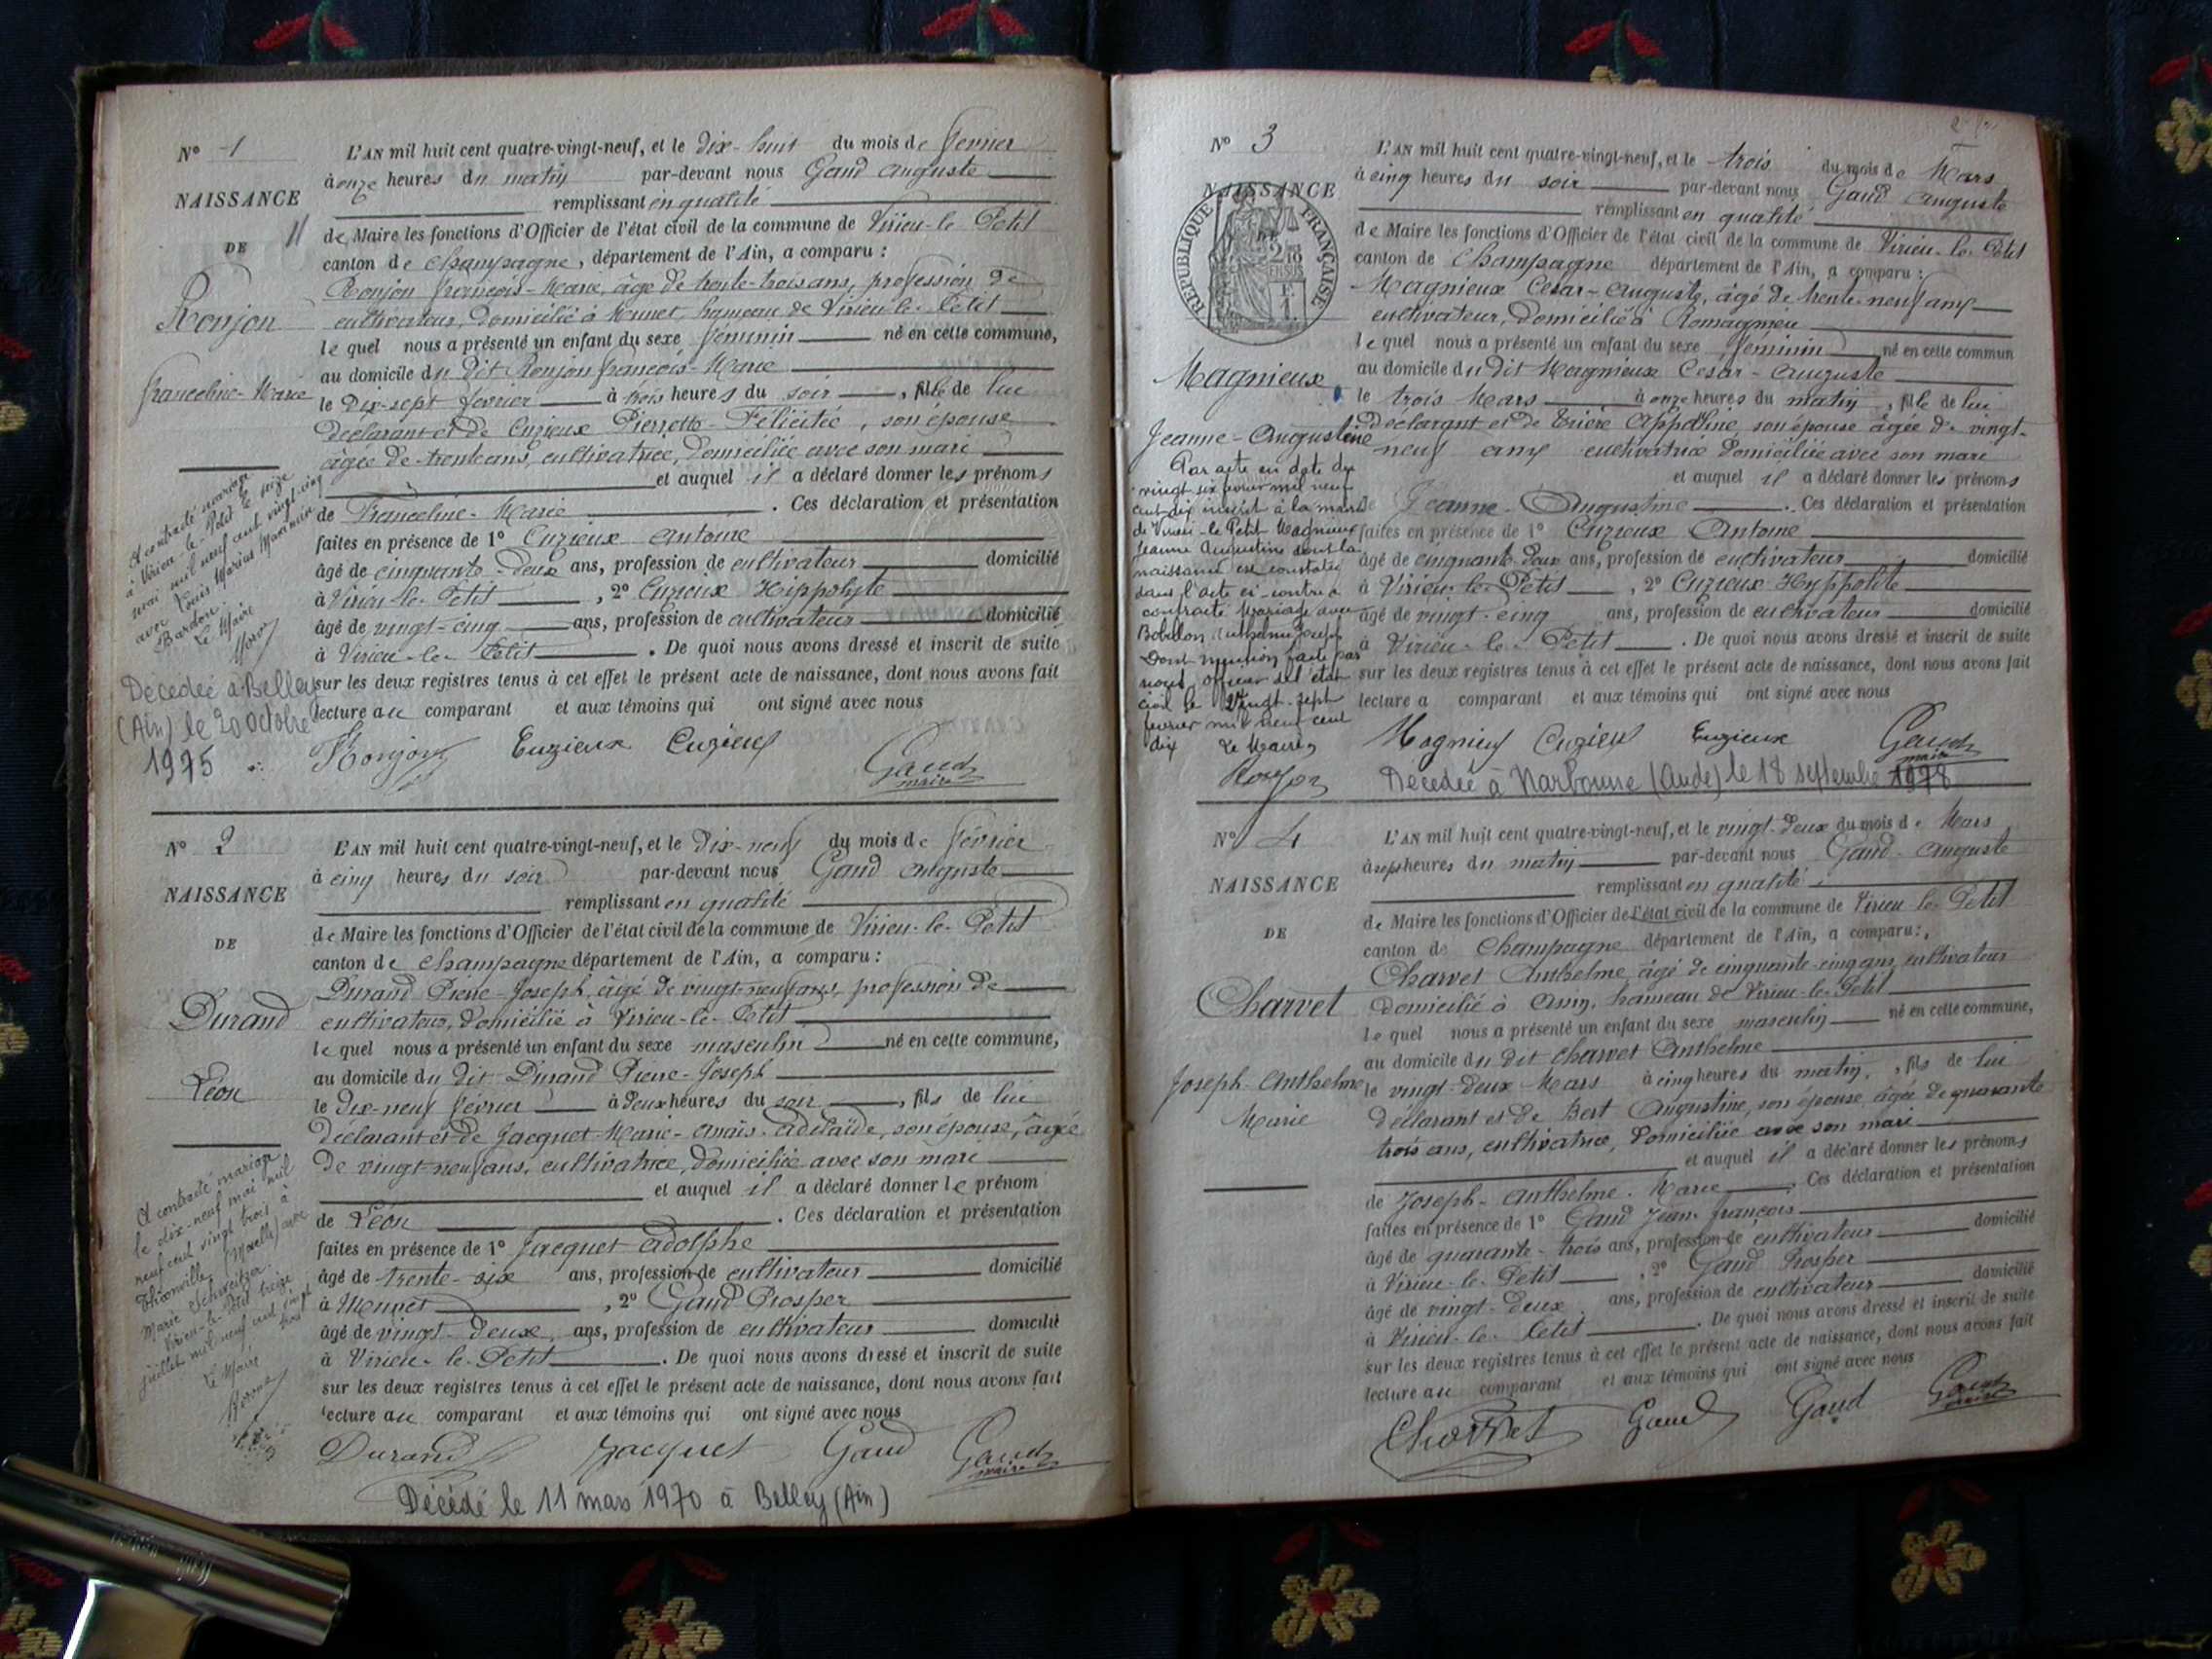 N° 1
NAISSANCE
DE
Ronjon
Franceline-Marie
A contracté mariage
à Virieu-le-Petit le seize
mai mil neuf cent vingt-cinq
avec Louis Marius Maximin
Bardon
Le Maire
Décédée à Belley
(Ain) le 20 octobre
1975
L'AN mil huit cent quatre-vingt-neuf, et le dix-huit du mois de Février
à onze heures du matin par-devant nous Gaud Auguste
remplissant en qualité
de Maire les fonctions d'Officier de l'état civil de la commune de Virieu-le-Petit
canton de Champagne, département de l'Ain, a comparu :
Ronjon François-Marie, âgé de trente-trois ans, profession de
cultivateur, domicilié à Munet, hameau de Virieu-le-Petit
le quel nous a présenté un enfant du sexe féminin né en cette commune,
au domicile du dit Ronjon François-Marie
le dix-sept février à trois heures du soir, fille de lui
déclarant et de Cuzieux Pierrette-Félicitée, son épouse
âgée de trente ans, cultivatrice, domiciliée avec son mari
et auquel il a déclaré donner les prénoms
de Franceline-Marie. Ces déclaration et présentation
faites en présence de 1° Cuzieux Antoine
âgé de cinquante-deux ans, profession de cultivateur domicilié
à Virieu-le-Petit, 2° Cuzieux Hippolyte
âgé de vingt-cinq ans, profession de cultivateur domicilié
à Virieu-le-Petit. De quoi nous avons dressé et inscrit de suite
sur les deux registres tenus à cet effet le présent acte de naissance, dont nous avons fait
lecture au comparant et aux témoins qui ont signé avec nous
Ronjon Cuzieux Cuzieux Gaud
maire
N° 2
NAISSANCE
DE
Durand
Léon
A contracté mariage
le dix-neuf mai mil
neuf cent vingt trois à
Thionville (Moselle) avec
Marie Schweitzer
Virieu-le-Petit treize
juillet mil neuf cent vingt
trois
Le Maire
L'AN mil huit cent quatre-vingt-neuf, et le dix-neuf du mois de Février
à cinq heures du soir par-devant nous Gaud Auguste
remplissant en qualité
de Maire les fonctions d'Officier de l'état civil de la commune de Virieu-le-Petit
canton de Champagne département de l'Ain, a comparu :
Durand Pierre-Joseph, âgé de vingt-neuf ans, profession de
cultivateur, domicilié à Virieu-le-Petit
le quel nous a présenté un enfant du sexe masculin né en cette commune,
au domicile du dit Durand Pierre-Joseph
le dix-neuf février à deux heures du soir, fils de lui
déclarant et de Jacquet Marie-Anaïs-Adélaïde, son épouse, âgée
de vingt-neuf ans, cultivatrice, domiciliée avec son mari
et auquel il a déclaré donner le prénom
de Léon. Ces déclaration et présentation
faites en présence de 1° Jacquet Adolphe
âgé de trente-six ans, profession de cultivateur domicilié
à Munet, 2° Gaud Prosper
âgé de vingt-deux ans, profession de cultivateur domicilié
à Virieu-le-Petit. De quoi nous avons dressé et inscrit de suite
sur les deux registres tenus à cet effet le présent acte de naissance, dont nous avons fait
lecture au comparant et aux témoins qui ont signé avec nous
Durand Jacquet Gaud Gaud
maire
Décédé le 11 mars 1970 à Belley (Ain)
N° 3
NAISSANCE
REPUBLIQUE FRANÇAISE
Magnieux
Jeanne-Augustine
Par acte en date du
vingt six février mil neuf
cent dix inscrit à la mairie
de Virieu-le-Petit Magnieux
Jeanne Augustine dont la
naissance est constatée
dans l'acte ci-contre a
contracté mariage avec
Bobillon Anthelme Joseph
Dont mention faite par
nous, officier de l'état
civil le vingt-sept
février mil neuf cent
dix Le Maire,
Ronjon
L'AN mil huit cent quatre-vingt-neuf, et le trois du mois de Mars
à cinq heures du soir par-devant nous Gaud Auguste
remplissant en qualité
de Maire les fonctions d'Officier de l'état civil de la commune de Virieu-le-Petit
canton de Champagne département de l'Ain, a comparu :
Magnieux César-Auguste, âgé de trente-neuf ans
cultivateur, domicilié à Romagnieu
le quel nous a présenté un enfant du sexe féminin né en cette commun
au domicile du dit Magnieux César-Auguste
le trois Mars à onze heures du matin, fille de lui
déclarant et de Trière Appoline, son épouse âgée de vingt-
neuf ans cultivatrice domiciliée avec son mari
et auquel il a déclaré donner les prénoms
de Jeanne-Augustine. Ces déclaration et présentation
faites en présence de 1° Cuzieux Antoine
âgé de cinquante-deux ans, profession de cultivateur domicilié
à Virieu-le-Petit, 2° Cuzieux Hyppolite
âgé de vingt-cinq ans, profession de cultivateur domicilié
à Virieu-le-Petit. De quoi nous avons dressé et inscrit de suite
sur les deux registres tenus à cet effet le présent acte de naissance, dont nous avons fait
lecture a comparant et aux témoins qui ont signé avec nous
Magnieux Cuzieux Cuzieux Gaud
maire
Décédée à Narbonne (Aude) le 18 septembre 1978
N° 4
NAISSANCE
DE
Charvet
Joseph-Anthelme
Marie
L'AN mil huit cent quatre-vingt-neuf, et le vingt-deux du mois de Mars
à sept heures du matin par-devant nous Gaud Auguste
remplissant en qualité
de Maire les fonctions d'Officier de l'état civil de la commune de Virieu-le-Petit
canton de Champagne département de l'Ain, a comparu :
Charvet Anthelme, âgé de cinquante-cinq ans, cultivateur
domicilié à Assin, hameau de Virieu-le-Petit
le quel nous a présenté un enfant du sexe masculin né en cette commune,
au domicile du dit Charvet Anthelme
le vingt-deux Mars à cinq heures du matin, fils de lui
déclarant et de Bert Augustine, son épouse âgée de quarante
trois ans, cultivatrice, domiciliée avec son mari
et auquel il a déclaré donner les prénoms
de Joseph-Anthelme-Marie. Ces déclaration et présentation
faites en présence de 1° Gaud Jean-François
âgé de quarante-trois ans, profession de cultivateur domicilié
à Virieu-le-Petit, 2° Gaud Prosper
âgé de vingt-deux ans, profession de cultivateur domicilié
à Virieu-le-Petit. De quoi nous avons dressé et inscrit de suite
sur les deux registres tenus à cet effet le présent acte de naissance, dont nous avons fait
lecture au comparant et aux témoins qui ont signé avec nous
Charvet Gaud Gaud Gaud
maire